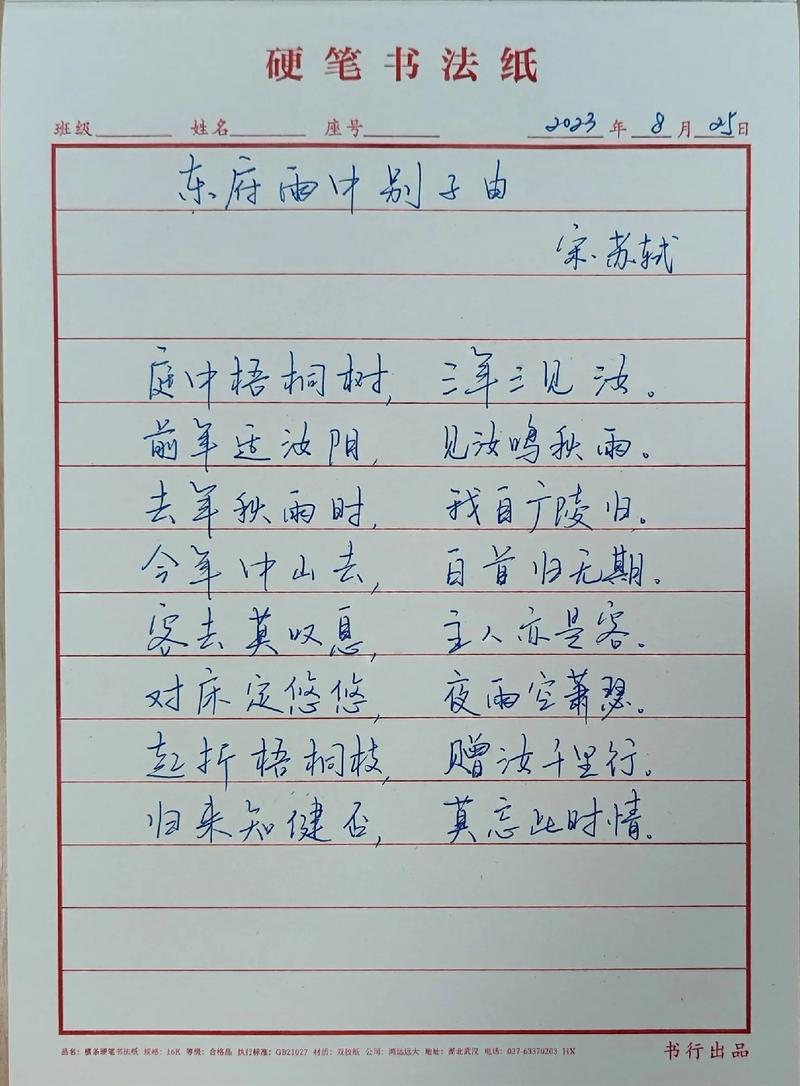 硬笔书法纸
班级 姓名 座号 2023年8月25日
东府雨中别子由
宋.苏轼
庭中梧桐树，三年三见汝。
前年适汝阴，见汝鸣秋雨。
去年秋雨时，我自广陵归。
今年中山去，白首归无期。
客去莫叹息，主人亦是客。
对床定悠悠，夜雨空萧瑟。
起折梧桐枝，赠汝千里行。
归来知健否，莫忘此时情。
品名：横条硬笔书法纸 规格：16K 等级：合格品 执行标准：GB21027 材质：双胶纸 公司：鸿运远大 地址：湖北武汉 电话：027-63370203 HX
书行出品